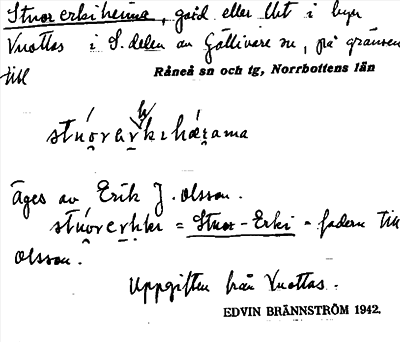 Stuor erkiheima, gård eller Ubt i byn
Vuottas i S. delen av Gällivare sn, på gränsen
till Råneå sn och tg, Norrbottens län
stuorerkihærama
Äges av Erik J. Olsson.
stuorerkki = Stuor-Erki - fadern till
Olsson.
Uppgiften från Vuottas.
EDVIN BRÄNNSTRÖM 1942.